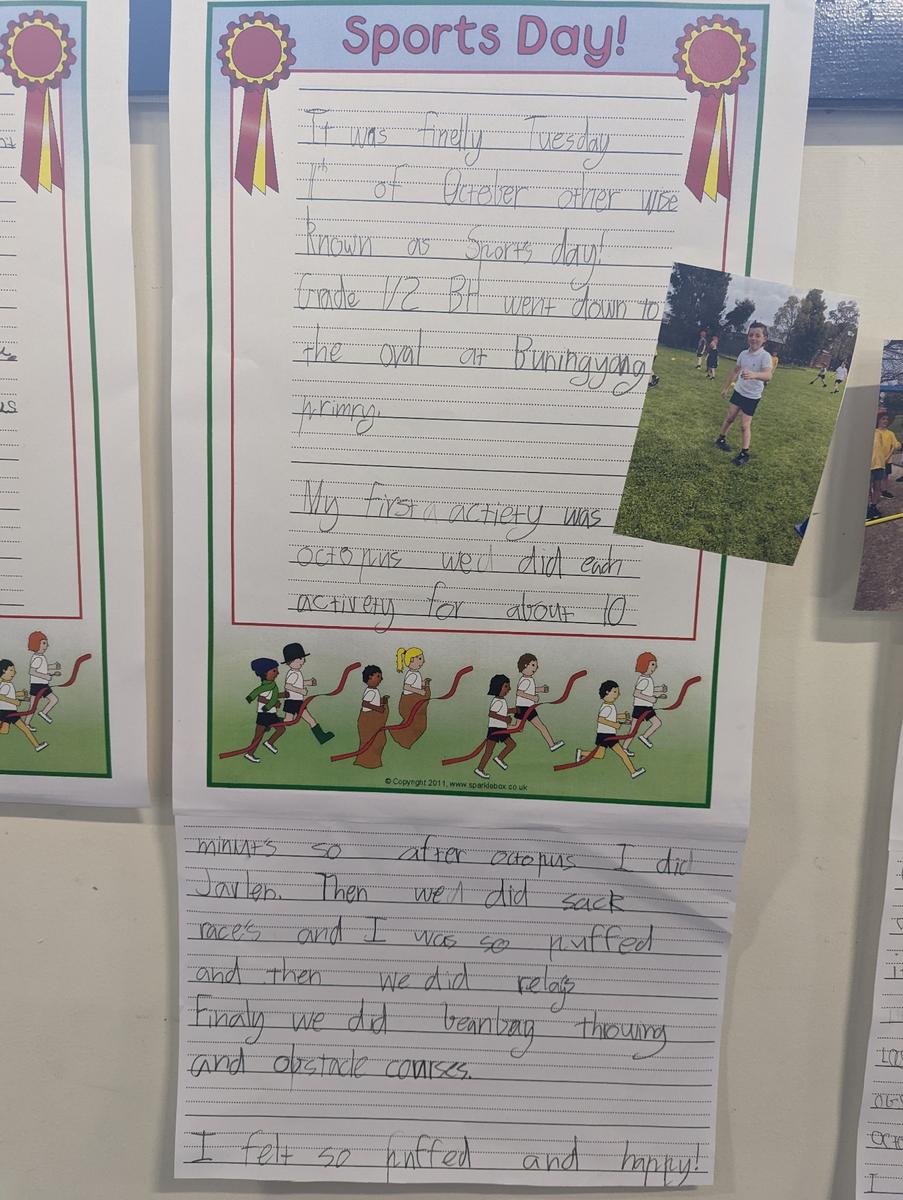 Sports Day!
It was finelly Tuesday
1th of October other wise
known as Sports day!
Grade 1/2 BH went down to
the oval at Buningyong
primry.
My first a actiety was
octopus wed did each
activety for about 10
© Copyright 2011, www.sparklebox.co.uk
minut's so after octopus I did
Javlen. Then wed did sack
race's and I was so puffed
and then we did relays
Finaly we did beanbag throwing
and obstacle courses.
I felt so puffed and happy!